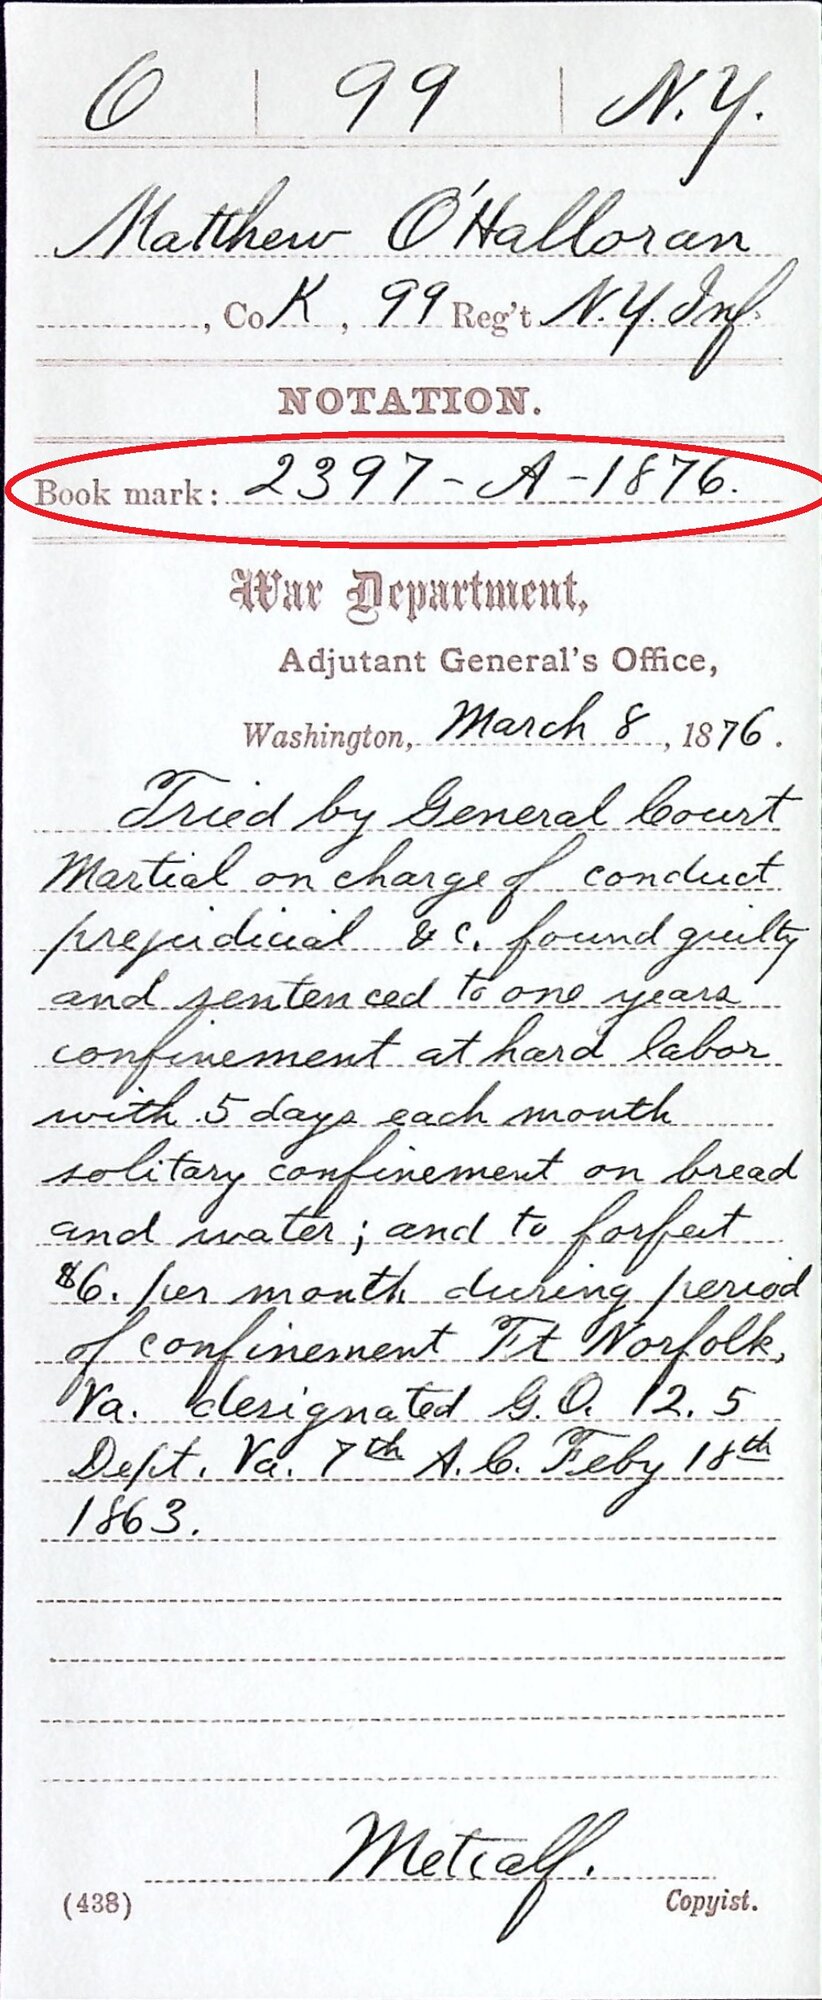 O | 99 | N.Y.
Matthew O'Halloran
, Co K, 99 Reg't N.Y. Inf.
NOTATION.
Book mark: 2397-A-1876.
War Department,
Adjutant General's Office,
Washington, March 8, 1876.
Tried by General Court
Martial on charge of conduct
prejudicial &c. found guilty
and sentenced to one years
confinement at hard labor
with 5 days each month
solitary confinement on bread
and water; and to forfeit
$6. per month during period
of confinement Ft Norfolk,
Va. designated G.O. 12. 5
Dept. Va. 7th A.C. Feby 18th
1863.
Metcalf.
(438) Copyist.